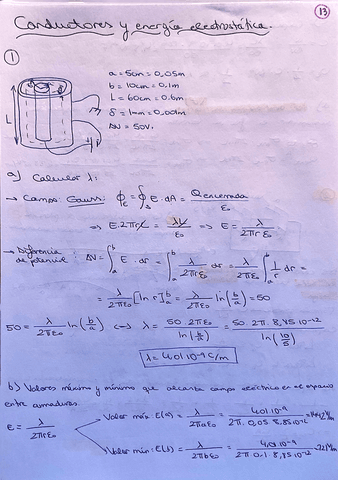 13
Conductores y energía electrostática.
1
a = 5cm = 0,05m
b = 10cm = 0,1m
L = 60cm = 0.6m
δ = 1mm = 0,001m
ΔV = 50V.
L
a) Calcular λ:
→ Campo: Gauss: ϕ_E = ∮_S E · dA = Qencerrada/ε₀
⇒ E · 2πrL = λL/ε₀ ⇒ E = λ/2πrε₀
→ Diferencia de potencial: ΔV = ∫_a^b E · dr = ∫_a^b λ/2πrε₀ dr = λ/2πε₀ ∫_a^b 1/r dr =
= λ/2πε₀ [ln r]_a^b = λ/2πε₀ ln(b/a) = 50
50 = λ/2πε₀ ln(b/a) ⟷ λ = 50 · 2πε₀/ln(b/a) = 50 · 2π · 8,85 · 10⁻¹²/ln(10/5)
λ = 4,01 · 10⁻⁹ C/m
b) Valores máximo y mínimo que alcanza campo eléctrico en el espacio
entre armaduras.
E = λ/2πrε₀
Valor máx: E(a) = λ/2πaε₀ = 4,01 · 10⁻⁹/2π · 0,05 · 8,85 · 10⁻¹² =
Valor mín: E(b) = λ/2πbε₀ = 4,01 · 10⁻⁹/2π · 0,1 · 8,85 · 10⁻¹² =